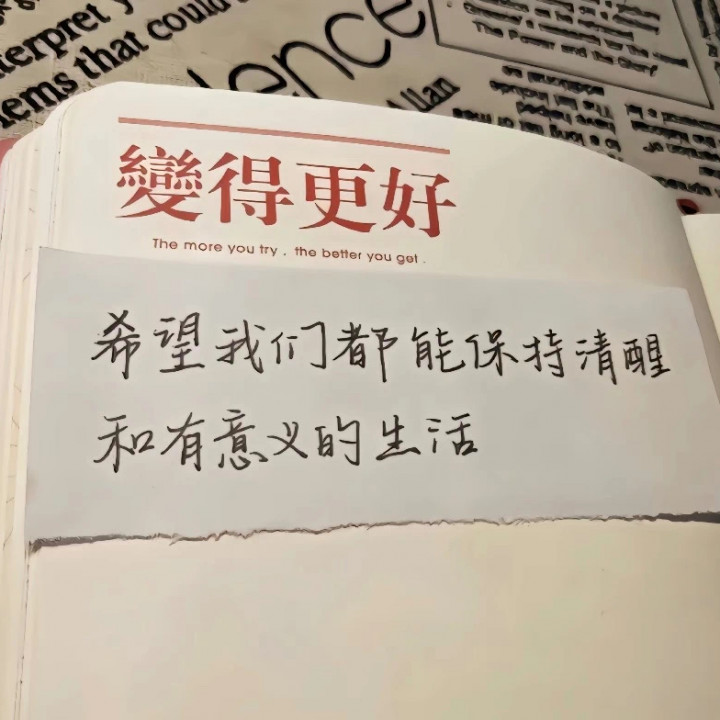 terpret y
ems that could
ence
Allan
The Power and the Glory
變得更好
The more you try , the better you get .
希望我们都能保持清醒
和有意义的生活